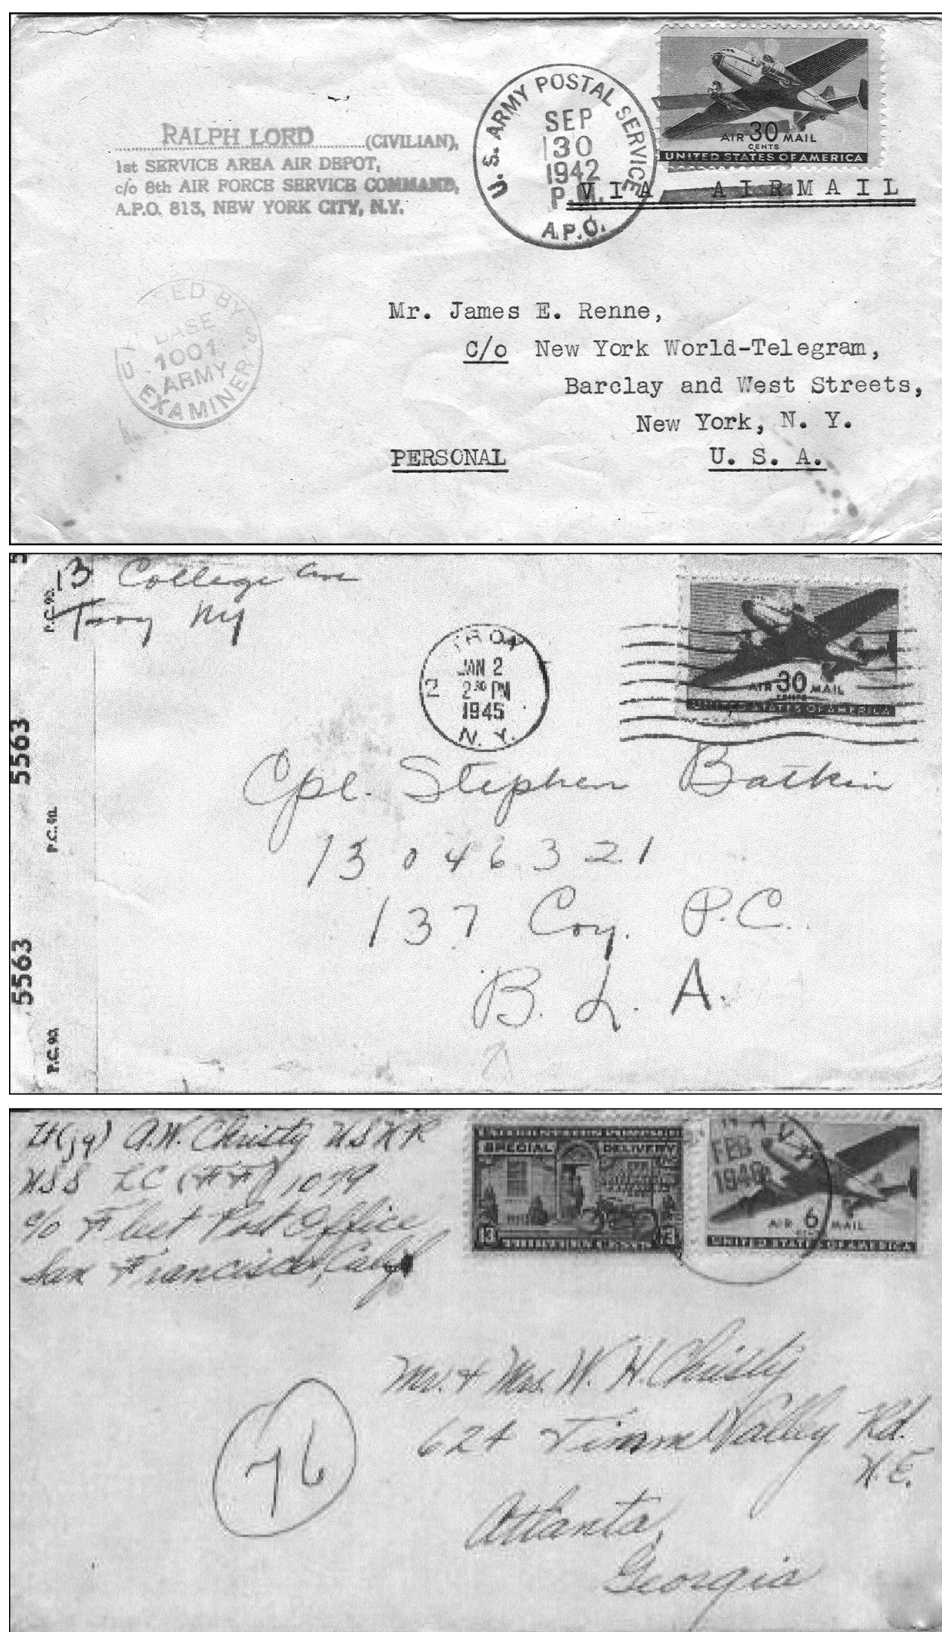 RALPH LORD (CIVILIAN),
1st SERVICE AREA AIR DEPOT,
c/o 8th AIR FORCE SERVICE COMMAND,
A.P.O. 813, NEW YORK CITY, N.Y.
U. S. ARMY POSTAL SERVICE
SEP
30
1942
P.M.
A.P.O.
AIR 30 MAIL
CENTS
UNITED STATES OF AMERICA
VIA AIRMAIL
BY
BASE
1001
ARMY
EXAMINER
Mr. James E. Renne,
C/o New York World-Telegram,
Barclay and West Streets,
New York, N. Y.
PERSONAL U. S. A.
13 College Ave
Troy NY
P.C. 90.
5563
P.C. 90.
5563
P.C. 90.
TROY
JAN 2
2 30 PM
1945
N. Y.
AIR 30 MAIL
CENTS
UNITED STATES OF AMERICA
Cpl. Stephen Batkin
13046321
137 Coy. P.C.
B. L. A.
Lt(jg) A.W. Christy USNR
USS LC (FF) 1079
c/o Fleet Post Office
San Francisco, Calif
SPECIAL DELIVERY
13 THIRTEEN CENTS 13
NAVY
FEB
1946
AIR 6 MAIL
UNITED STATES OF AMERICA
Mr. + Mrs. W. H. Christy
624 Timm Valley Rd.
N.E.
Atlanta,
Georgia
76